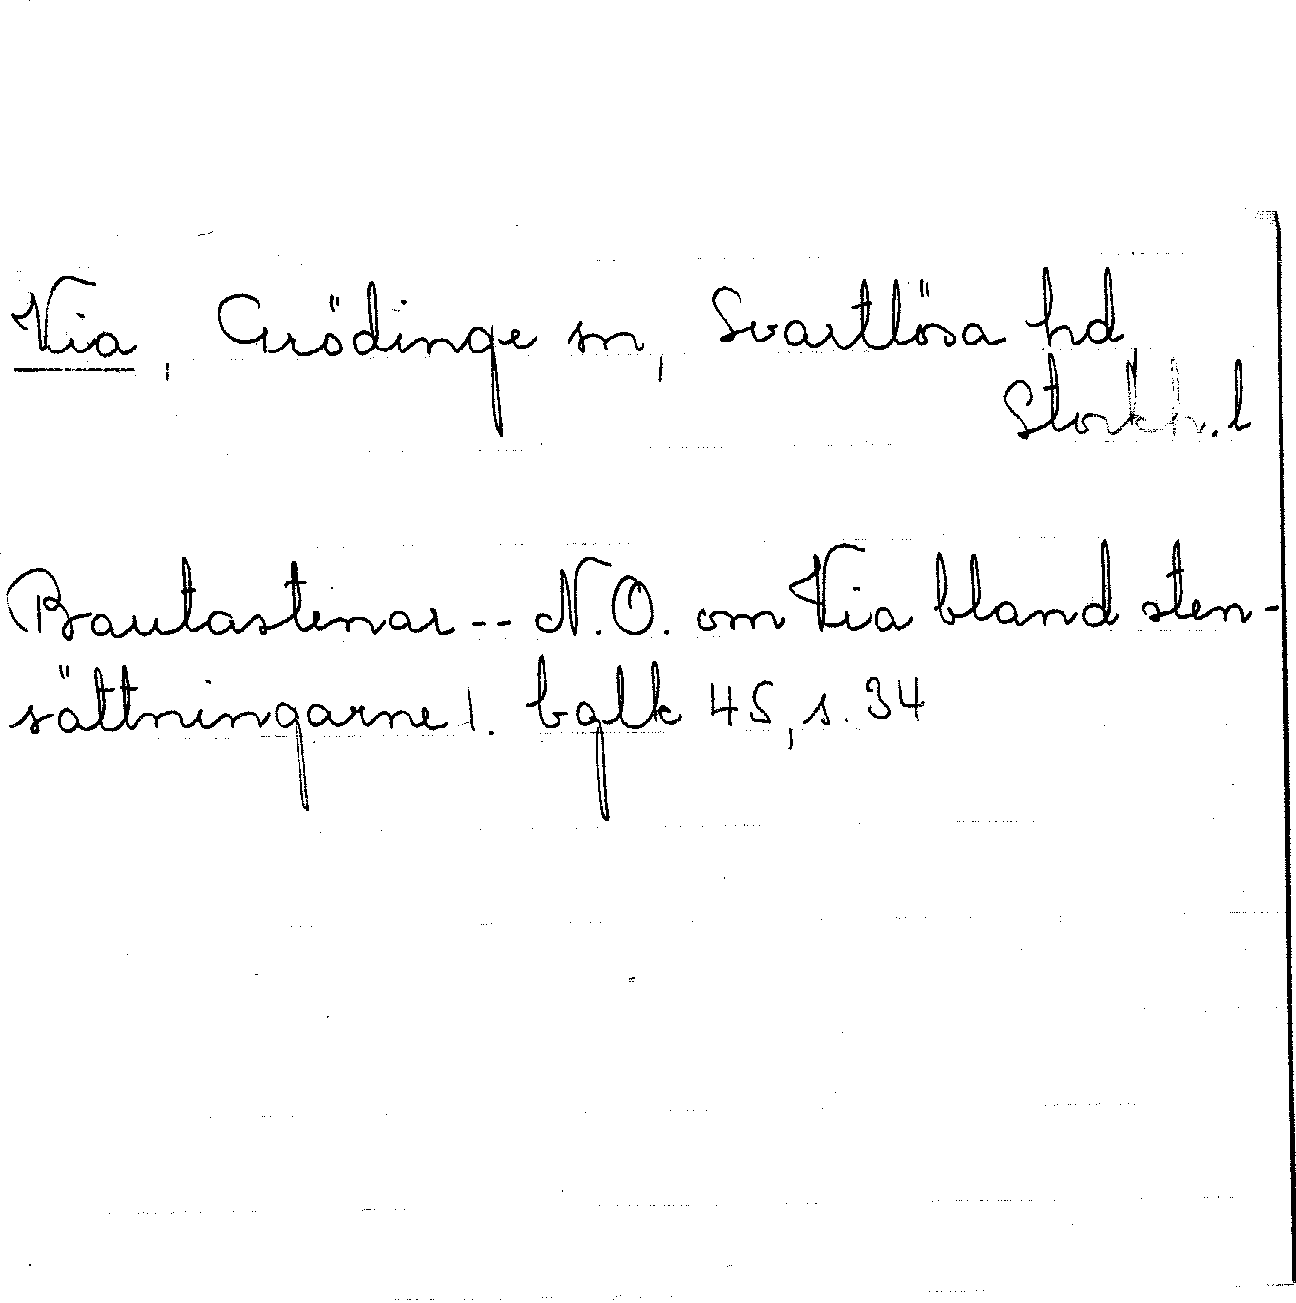 Via, Grödinge sn, Svartlösa hd
Stockh. l
Bautastenar -- N.O. om Via bland sten-
sättningarne!. bglk 45, s. 34